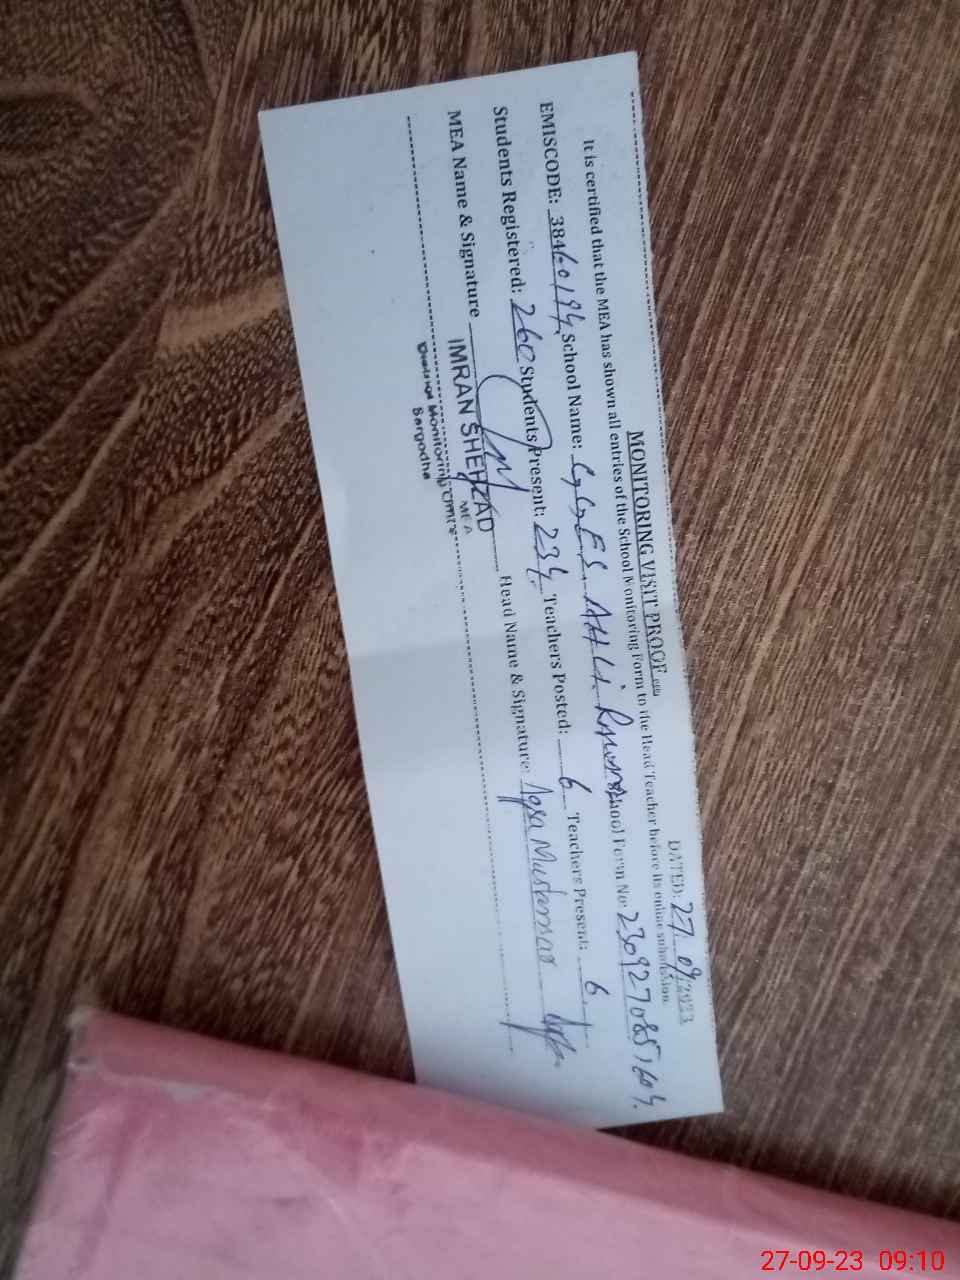 MONITORING VISIT PROOF
DATED: 27 09/2023
It is certified that the MEA has shown all entries of the School Monitoring Form to the Head Teacher before its online submission.
EMISCODE: 38460194 School Name: GGES. AHLI School Form No: 2309270851604.
Students Registered: 260 Students Present: 234 Teachers Posted: 6 Teachers Present: 6
MEA Name & Signature Head Name & Signature: Aqsa
IMRAN SHEHZAD
MEA
District Monitoring Office
Sargodha
27-09-23 09:10